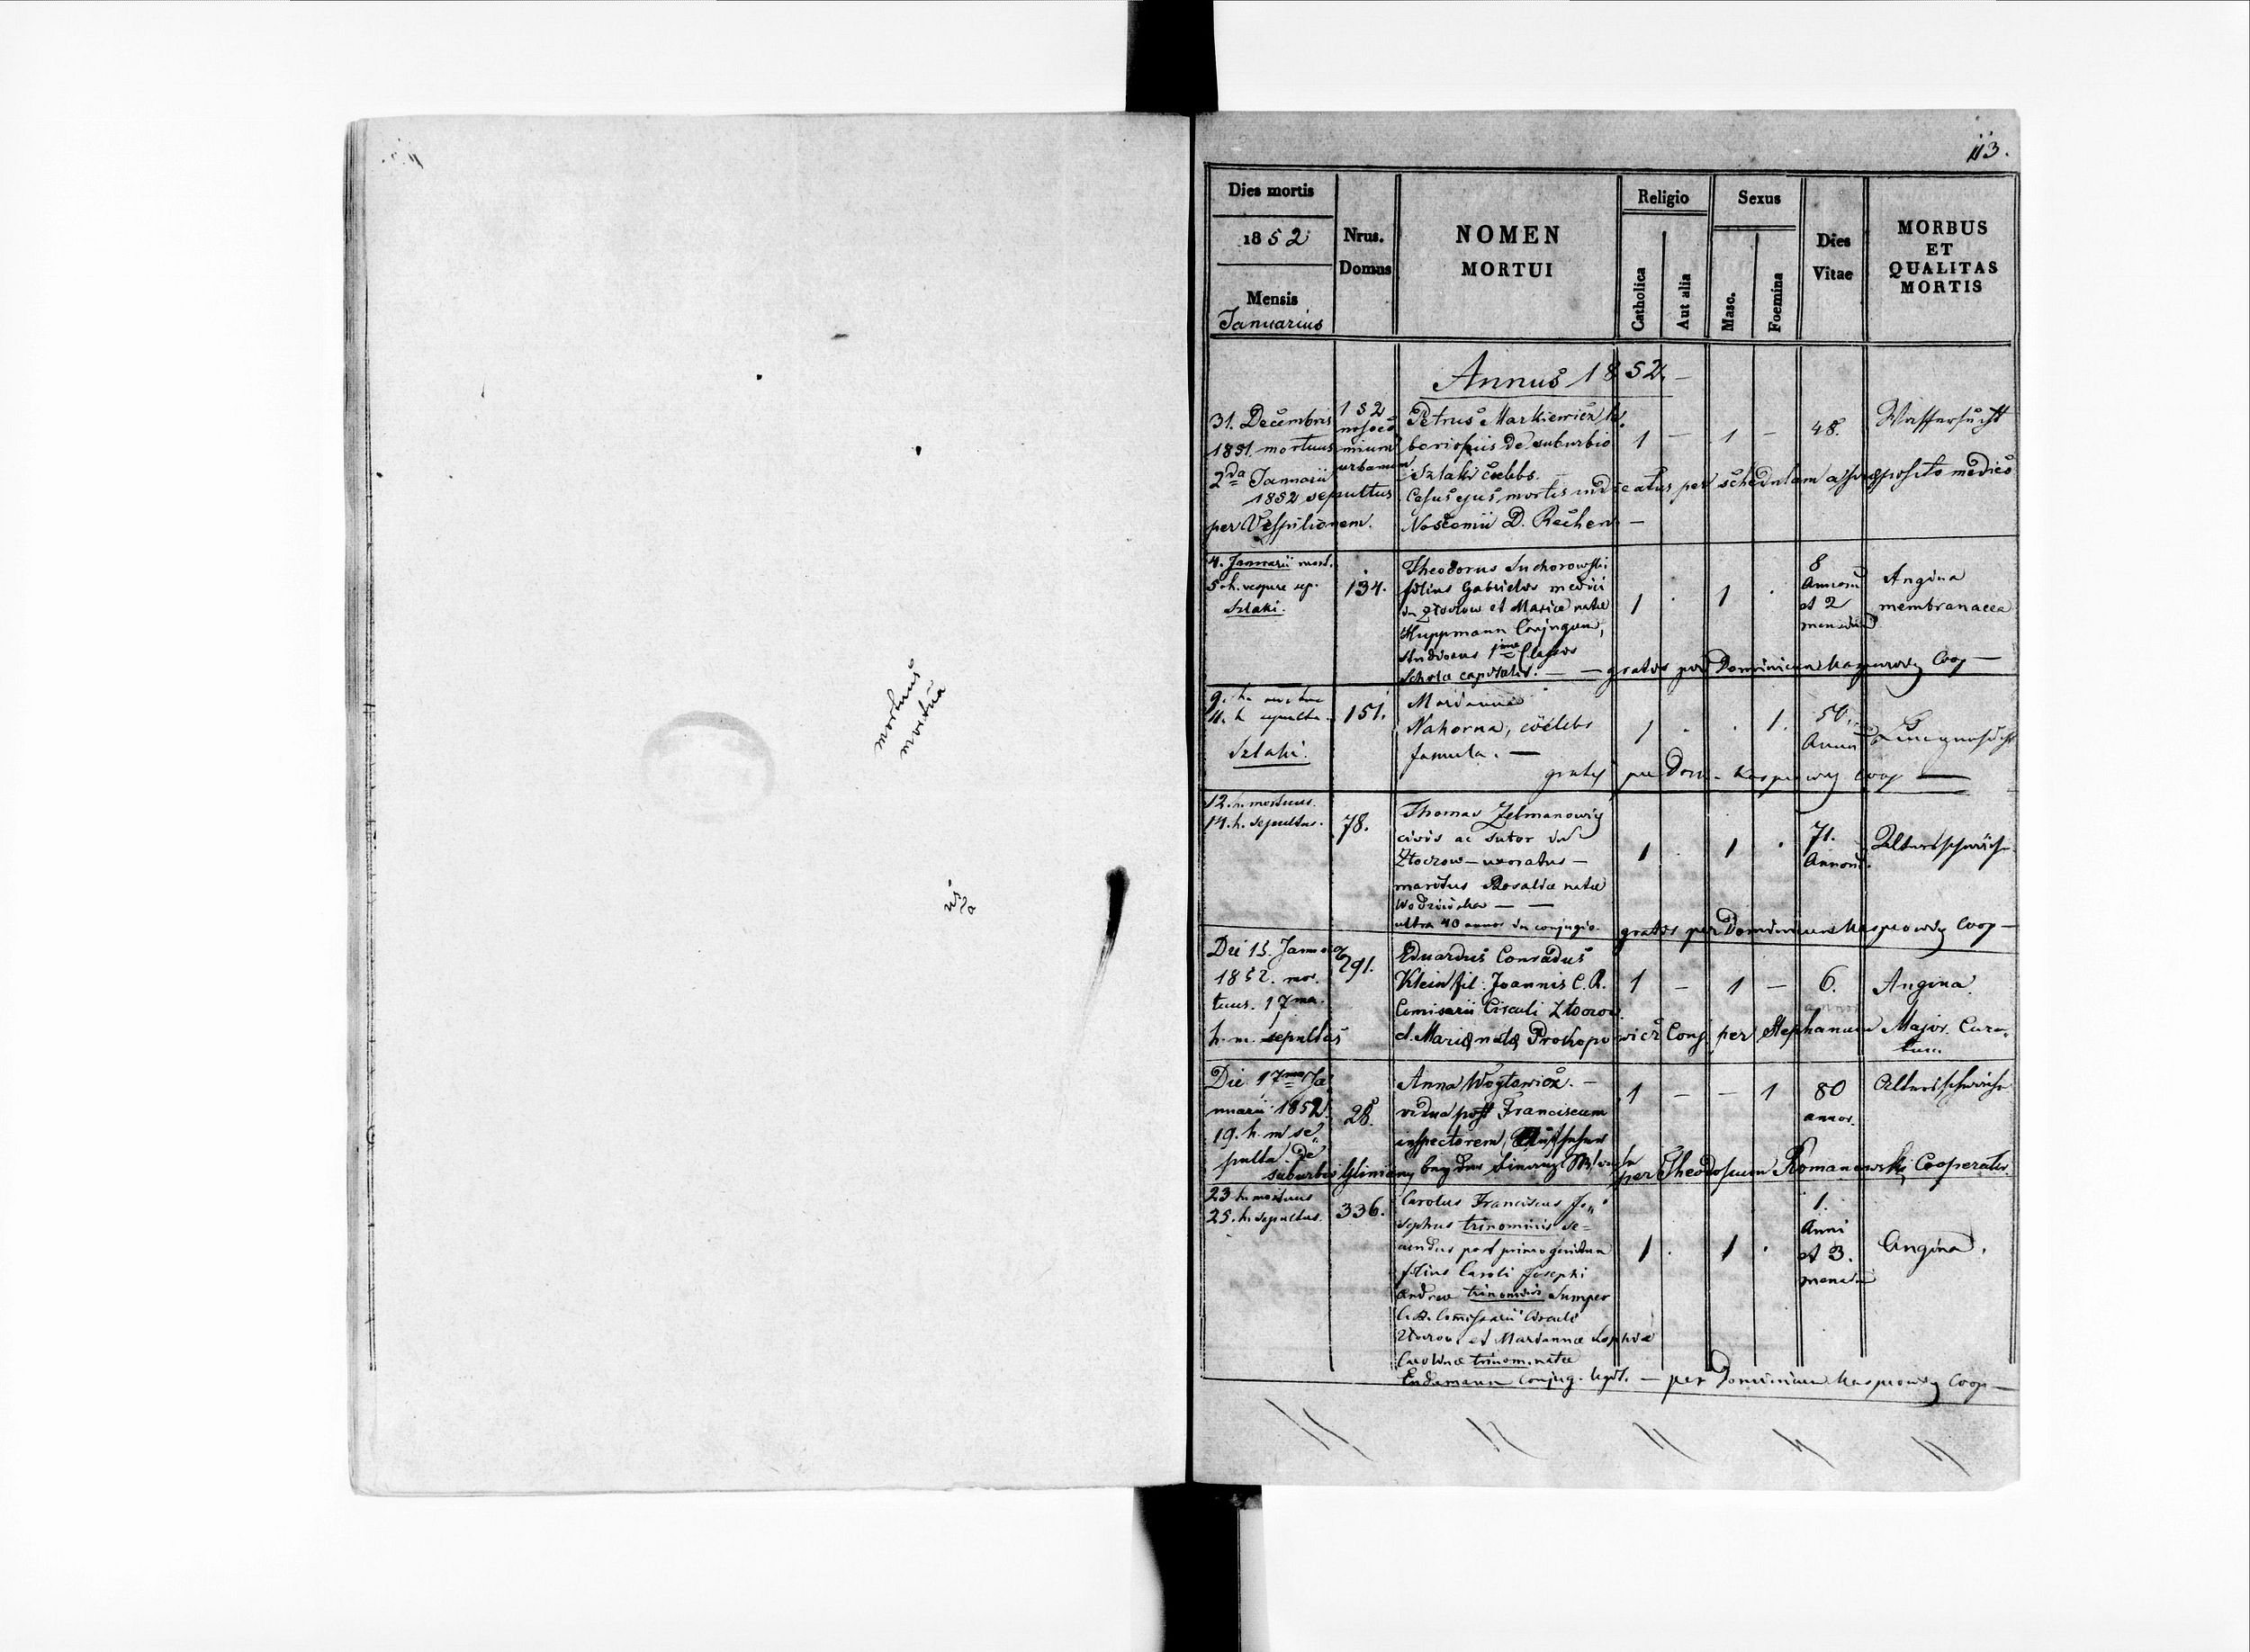 mortuus
mortua
us
a
113.
Dies mortis
1852
Mensis
Januarius
Nrus.
Domus
NOMEN
MORTUI
Religio
Catholica
Aut alia
Sexus
Masc.
Foemina
Dies
Vitae
MORBUS
ET
QUALITAS
MORTIS
Annus 1852. —
31. Decembris
1851. mortuus
2da Januarii
1852 sepultus
per Vespilionem.
152
nosoco
mium
urbanum
Petrus Markiewicz
de suburbio
Szlaki cœlebs.
Casus ejus mortis indicatus per schedulam a præposito medico
Noscomii D. Rechen —
1 — 1 — 48.
Wassersucht
4. Januarii mort.
5. h. vespere sep.
Szlaki.
134.
Theodorus Suchorowski
filius Gabrielis medici
in Złoczow et Mariæ natæ
Huppmann Conjugum,
studiosus 1mæ Classis
Scholæ capitalis. — — gratis per Dominicum Kasprowicz Coop —
1 . 1 .
8
Annorum
et 2
mensium
Angina
membranacea
9. h. mortua
11. h. sepulta.
Szlaki.
151.
Marianna
Nahorna, cœlebs
famula. —
gratis per Dom. Kasprowicz Coop —
1 . . 1.
50.
Annor
12. h. mortuus.
14. h. sepultus.
78.
Thomas Zelmanowicz
civis ac sutor in
Złoczow — uxoratus —
maritus Rosaliæ natæ
— —
ultra 40 annos in conjugio. gratis per Dominicum Kasprowicz Coop —
1 . 1 .
71.
Annor.
Altersschwäche
Die 15. Januarii
1852. mor.
tuus. 17ma.
h. m. sepultus
291.
Eduardus Conradus
Klein fil: Joannis C. R.
Comisarii Circuli Złoczow.
et Mariæ natæ Prokopowicz Conj per Stephanum Major. Cura-
tum.
1 — 1 — 6.
annor
Angina.
Die 17ma Ja
nuarii 1852
19. h. m se„
pulta. De
suburbio Gliniany
28.
Anna Woytowicz. —
vidua post Franciscum
inspectorem, Aufseher
bey der Finanz Wache
per Theodosium Romanowski Cooperator.
1 — — 1 80
annor.
Altersschwäche
23 h. mortuus
25. h. sepultus.
336.
Carolus Franciscus Jo„
sephus trinominis se=
cundus post primogenitum
filius Caroli Josephi
Andreæ trinominis Sumper
C. R. Comissarii Circuli
Złoczow. et Mariannæ Sophiæ
Carolinæ trinom. natæ
Endemann conjug. legit. — per Dominicum Kasprowicz Coop —
1 . 1 .
1.
Anni
et 3.
mensium
Angina.